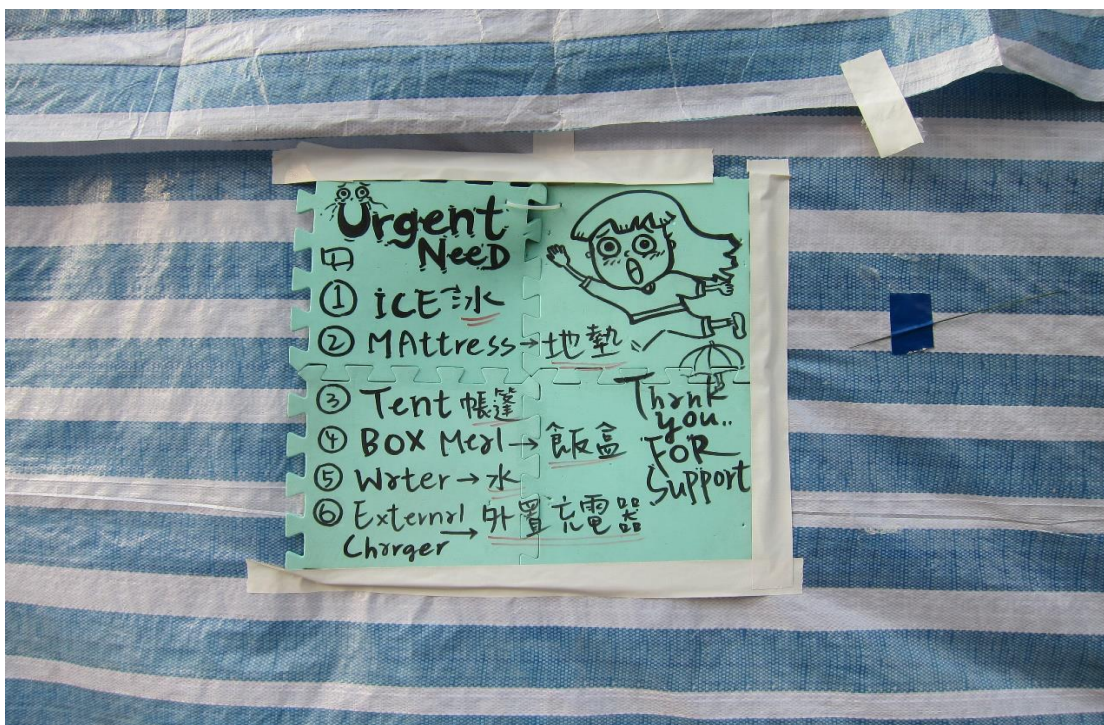 Urgent
NeeD
① iCE 冰
② MAttress → 地墊
③ Tent 帳篷
④ BOX Meal → 飯盒
⑤ Water → 水
⑥ External → 外置充電器
Charger
Thank
you..
FOR
Support